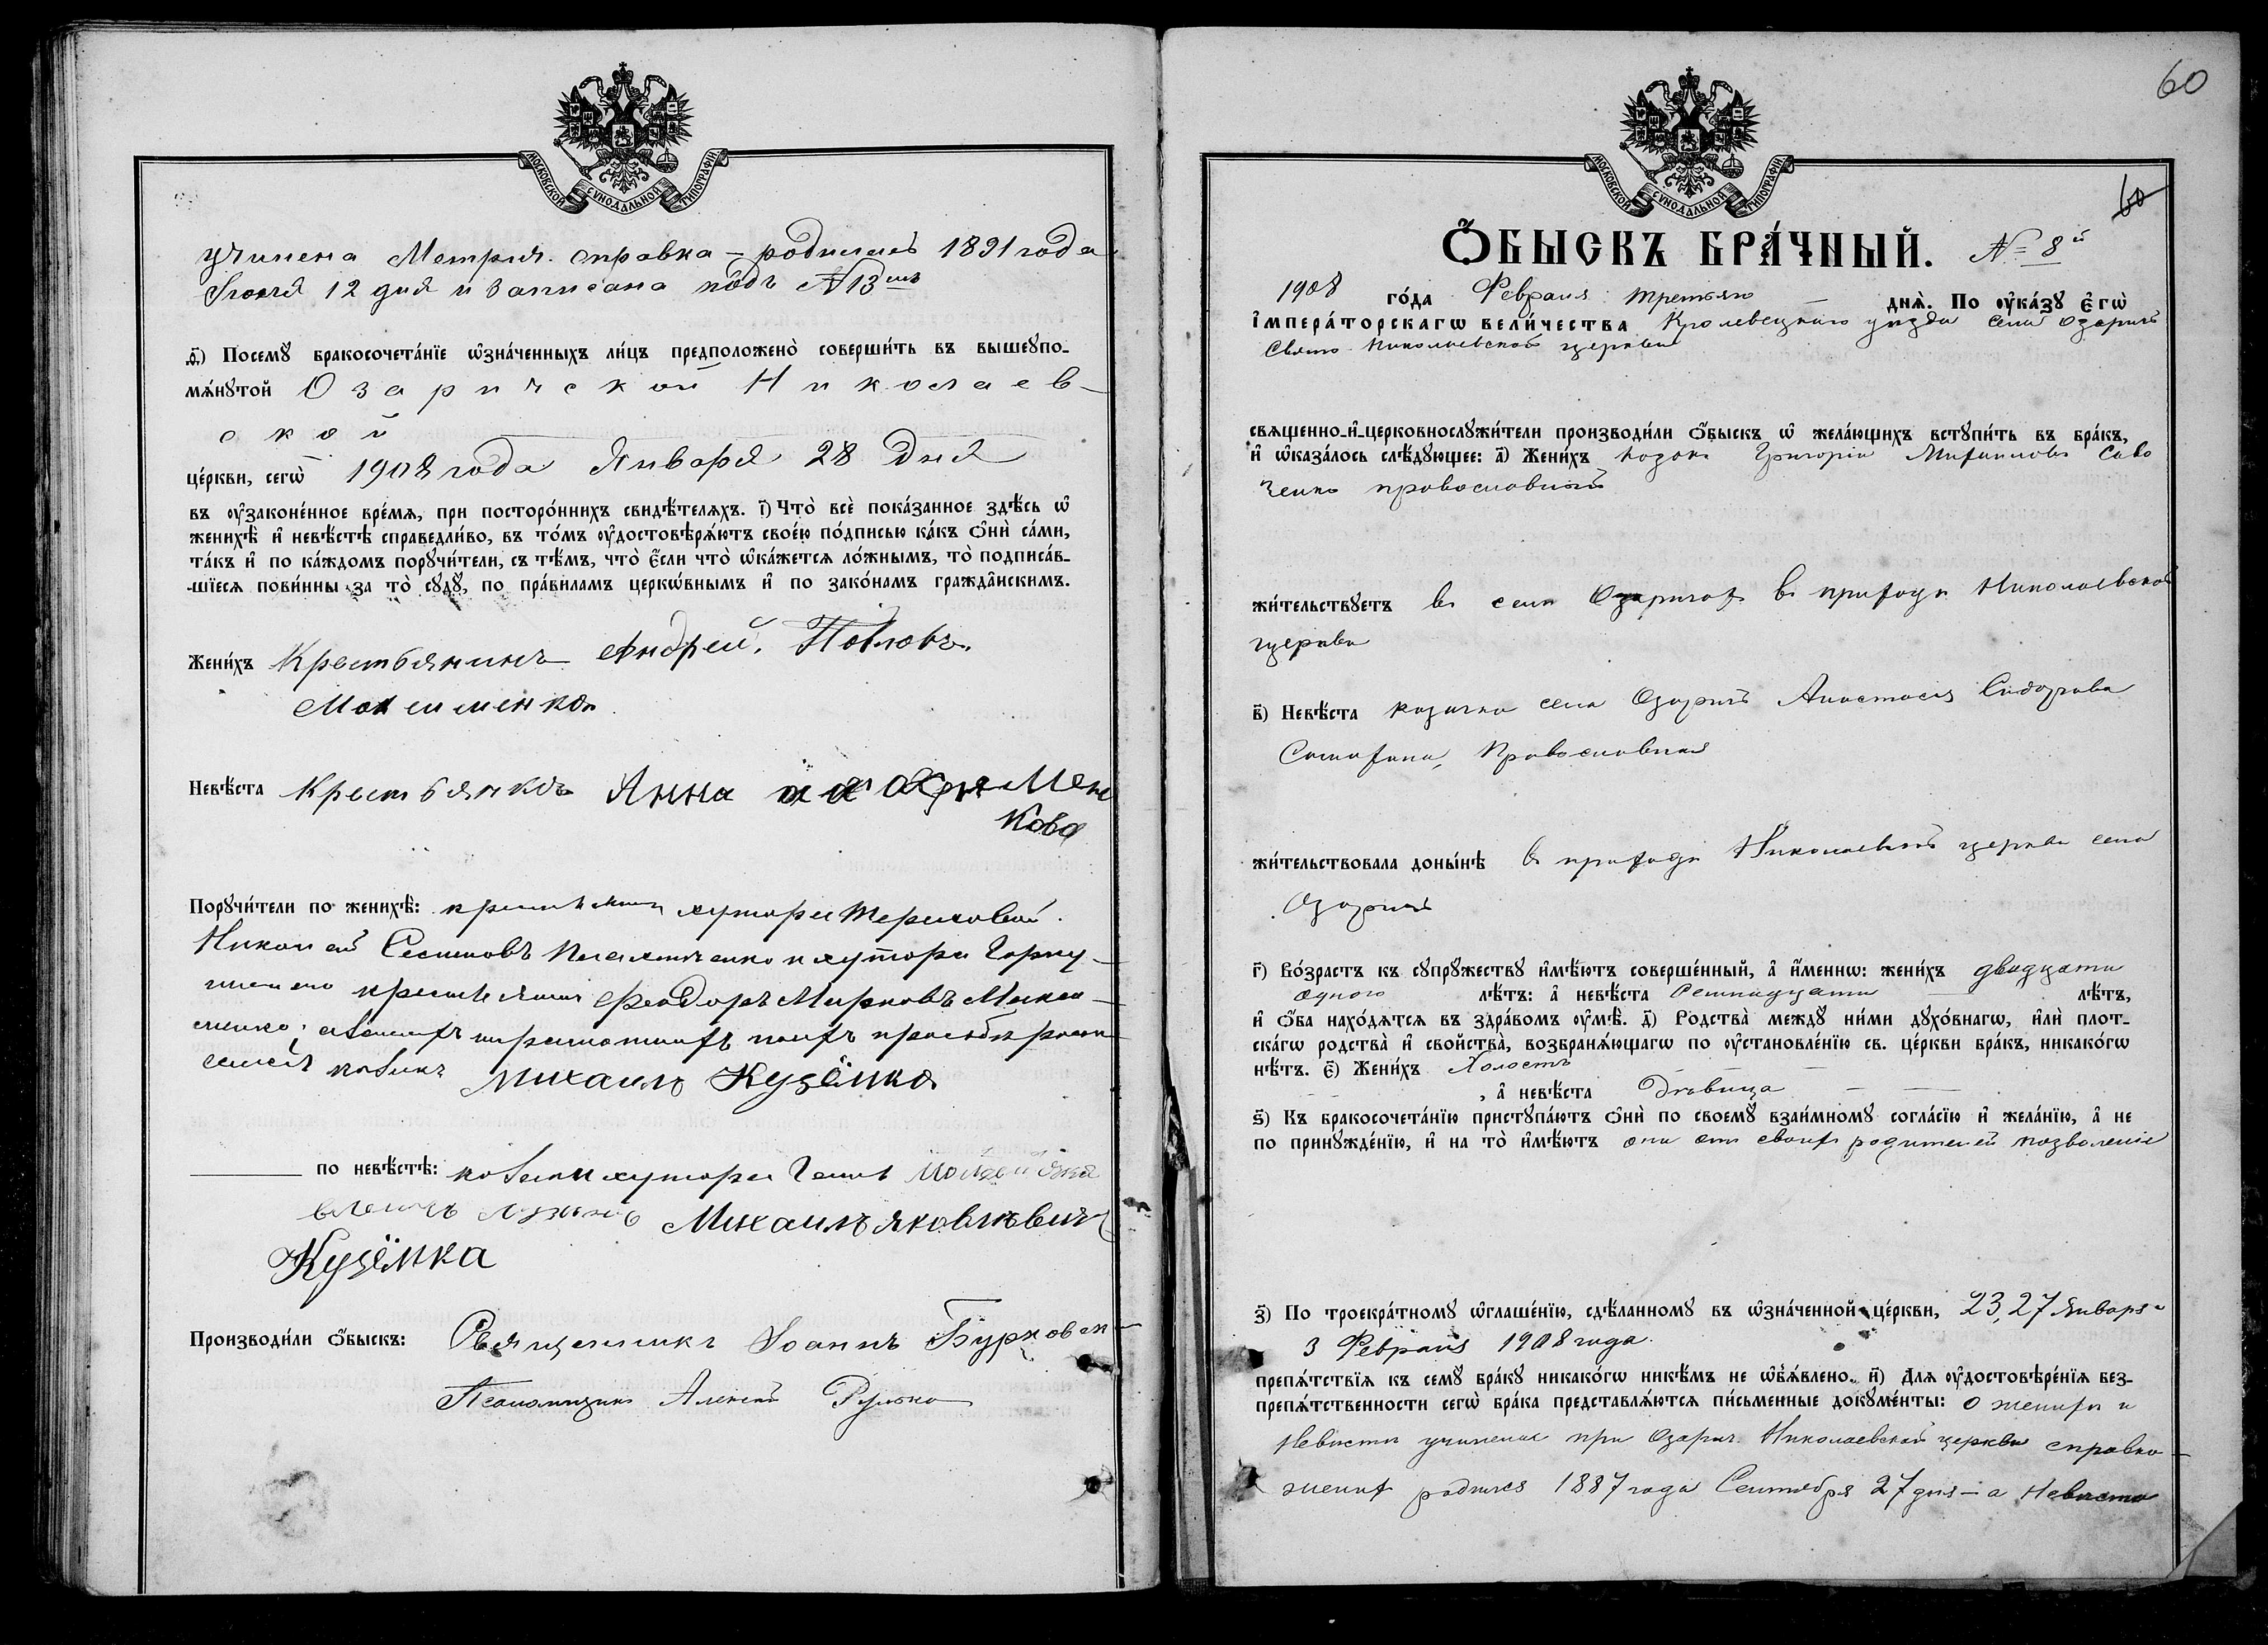 МОСКОВСКОЙ СѴНОДАЛЬНОЙ ТИПОГРАФІИ.
учинена Метрич. справка – родилась 1891 года
12 дня и записана подъ № 13мъ
Посемꙋ бракосочета́нїе ѡ҆зна́ченныхъ ли́цъ предположено̀ соверши́ть въ вышеꙋпо-
мѧ́нꙋтой Озаричской Николаев-
ской
це́ркви, сегѡ̀ 1908 года Января 28 дня
въ ᲂу҆законе́нное вре́мѧ, при посторо́ннихъ свидѣ́телѧхъ. і҃) Что̀ всѐ пока́занное здѣ́сь ѡ҆
женихѣ̀ и҆ невѣ́стѣ справедли́во, въ то́мъ ᲂу҆достовѣрѧ́ютъ свое́ю по́дписью ка́къ ѻ҆нѝ са́ми,
та́къ и҆ по ка́ждомъ порꙋчи́тели, съ тѣ́мъ, что̀ є҆́сли что̀ ѡ҆ка́жетсѧ ло́жнымъ, то̀ подписа́в-
шїесѧ пови́нны за то̀ сꙋдꙋ̀, по пра́виламъ церкѡ́внымъ и҆ по зако́намъ гражда̑нскимъ.
Жени́хъ Крестьянинъ Андрей Павловъ
Максименко
Невѣ́ста Крестьянка Анна
кова
Порꙋчи́тели по женихѣ̀: хутора Терековой
Николай
крестьянинъ Феодоръ Марковъ Макси-
менко,
Михаилъ Кузёмка
по невѣ́стѣ: хутора
Михаилъ Яковлевичъ
Кузёмка
Производи́ли ѻ҆́быскъ: Священникъ Іоаннъ Бурковск
Псаломщикъ Алексѣй
60
МОСКОВСКОЙ СѴНОДАЛЬНОЙ ТИПОГРАФІИ.
60
Ѻ҆́БЫСКЪ БРА́ЧНЫЙ. № 8й
1908 го́да Февраля третьяго – днѧ̀. По ᲂу҆ка́зꙋ є҆гѡ̀
і҆мпера́торскагѡ вели́чества Кролевецкаго уѣзда села Озаричъ
Свято-Николаевской церкви
свѧщенно-и҆-церковнослꙋжи́тели производи́ли ѻ҆́быскъ ѡ҆ жела́ющихъ встꙋпи́ть въ бра́къ,
и҆ ѡ҆каза́лось слѣ́дꙋющее: а҃) Жени́хъ козакъ Григорій Михаиловъ Саво
ченко православный
жи́тельствꙋетъ въ селѣ Озаричахъ въ приходѣ Николаевской
церкви
в҃) Невѣ́ста козачка села Озаричъ Анастасія Сидорова
Православная
жи́тельствовала доны́нѣ въ приходѣ Николаевской церкви села
Озаричъ
г҃) Во́зрастъ къ сꙋпрꙋ́жествꙋ и҆мѣ́ютъ соверше́нный, а҆ и҆́меннѡ: жени́хъ двадцати
одного лѣ́тъ: а҆ невѣ́ста семнадцати лѣ́тъ,
и҆ ѻ҆́ба нахо́дѧтсѧ въ здра́вомъ ᲂу҆мѣ̀. д҃) Родства̀ междꙋ ни́ми дꙋхо́внагѡ, и҆лѝ плот-
ска́гѡ родства̀ и҆ сво́йства̀, возбранѧ́ющагѡ по ᲂу҆становле́нїю св. це́ркви бра́къ, никако́гѡ
нѣ́тъ. є҃) Жени́хъ Холостъ –
, а҆ невѣ́ста Дѣвица – –
ѕ҃) Къ бракосочета́нїю пристꙋпа́ютъ ѻ҆нѝ по своемꙋ̀ взаи́мномꙋ согла́сїю и҆ жела́нїю, а҆ не
по принꙋжде́нїю, и҆ на то̀ и҆мѣ́ютъ они отъ своихъ родителей позволеніе
з҃) По троекра́тномꙋ ѡ҆глаше́нїю, сдѣ́ланномꙋ въ ѡ҆зна́ченной це́ркви, 23, 27 Января и
3 Февраля 1908 года.
препѧ́тствїѧ къ семꙋ̀ бра́кꙋ никако́гѡ никѣ́мъ не ѡ҆б̾ѧ́влено. и҃) Длѧ ᲂу҆достовѣре́нїѧ без-
препѧ́тственности сегѡ̀ бра́ка представлѧ́ютсѧ пи́сьменные докꙋме́нты: о женихѣ и
невѣстѣ учинена при Озарич. Николаевской церкви справка –
женихъ родился 1887 года Сентября 27 дня – а невѣста